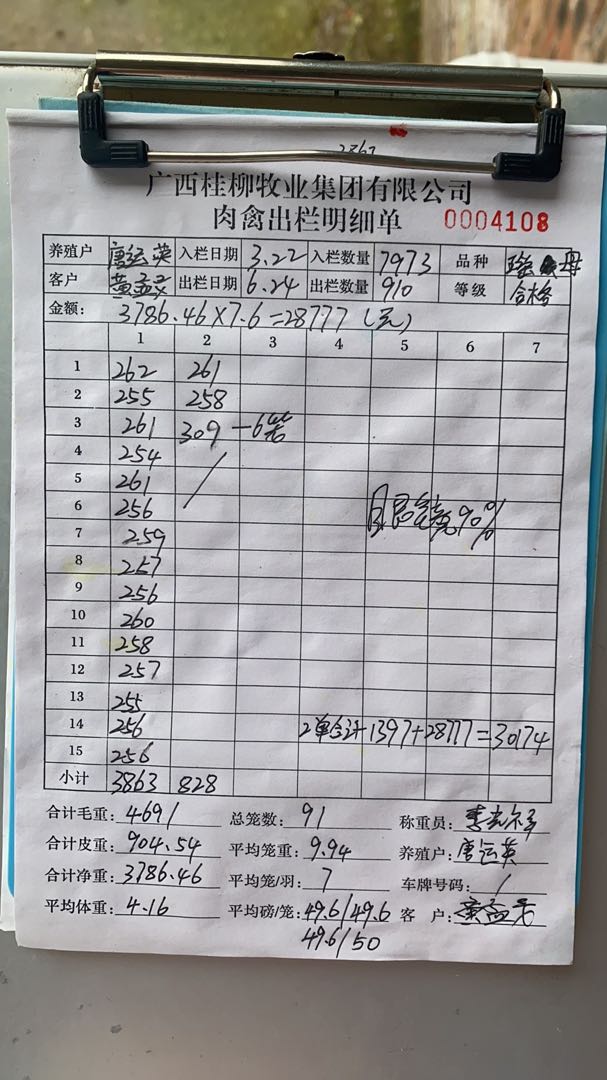 2867
广西桂柳牧业集团有限公司
肉禽出栏明细单 0004108
养殖户 唐运英 入栏日期 3.22 入栏数量 7973 品种 母
客户 出栏日期 6.24 出栏数量 910 等级 合格
金额: 3786.46×7.6=28777(元)
1 2 3 4 5 6 7
1 262 261
2 255 258
3 261 309 -6笼
4 254
5 261
6 256 90%
7 259
8 257
9 256
10 260
11 258
12 257
13 255
14 256 2单合计1397+28777=30174
15 256
小计 3863 828
合计毛重: 4691 总笼数: 91 称重员:
合计皮重: 904.54 平均笼重: 9.94 养殖户: 唐运英
合计净重: 3786.46 平均笼/羽: 7 车牌号码: /
平均体重: 4.16 平均磅/笼: 49.6/49.6 客户:
49.6/50